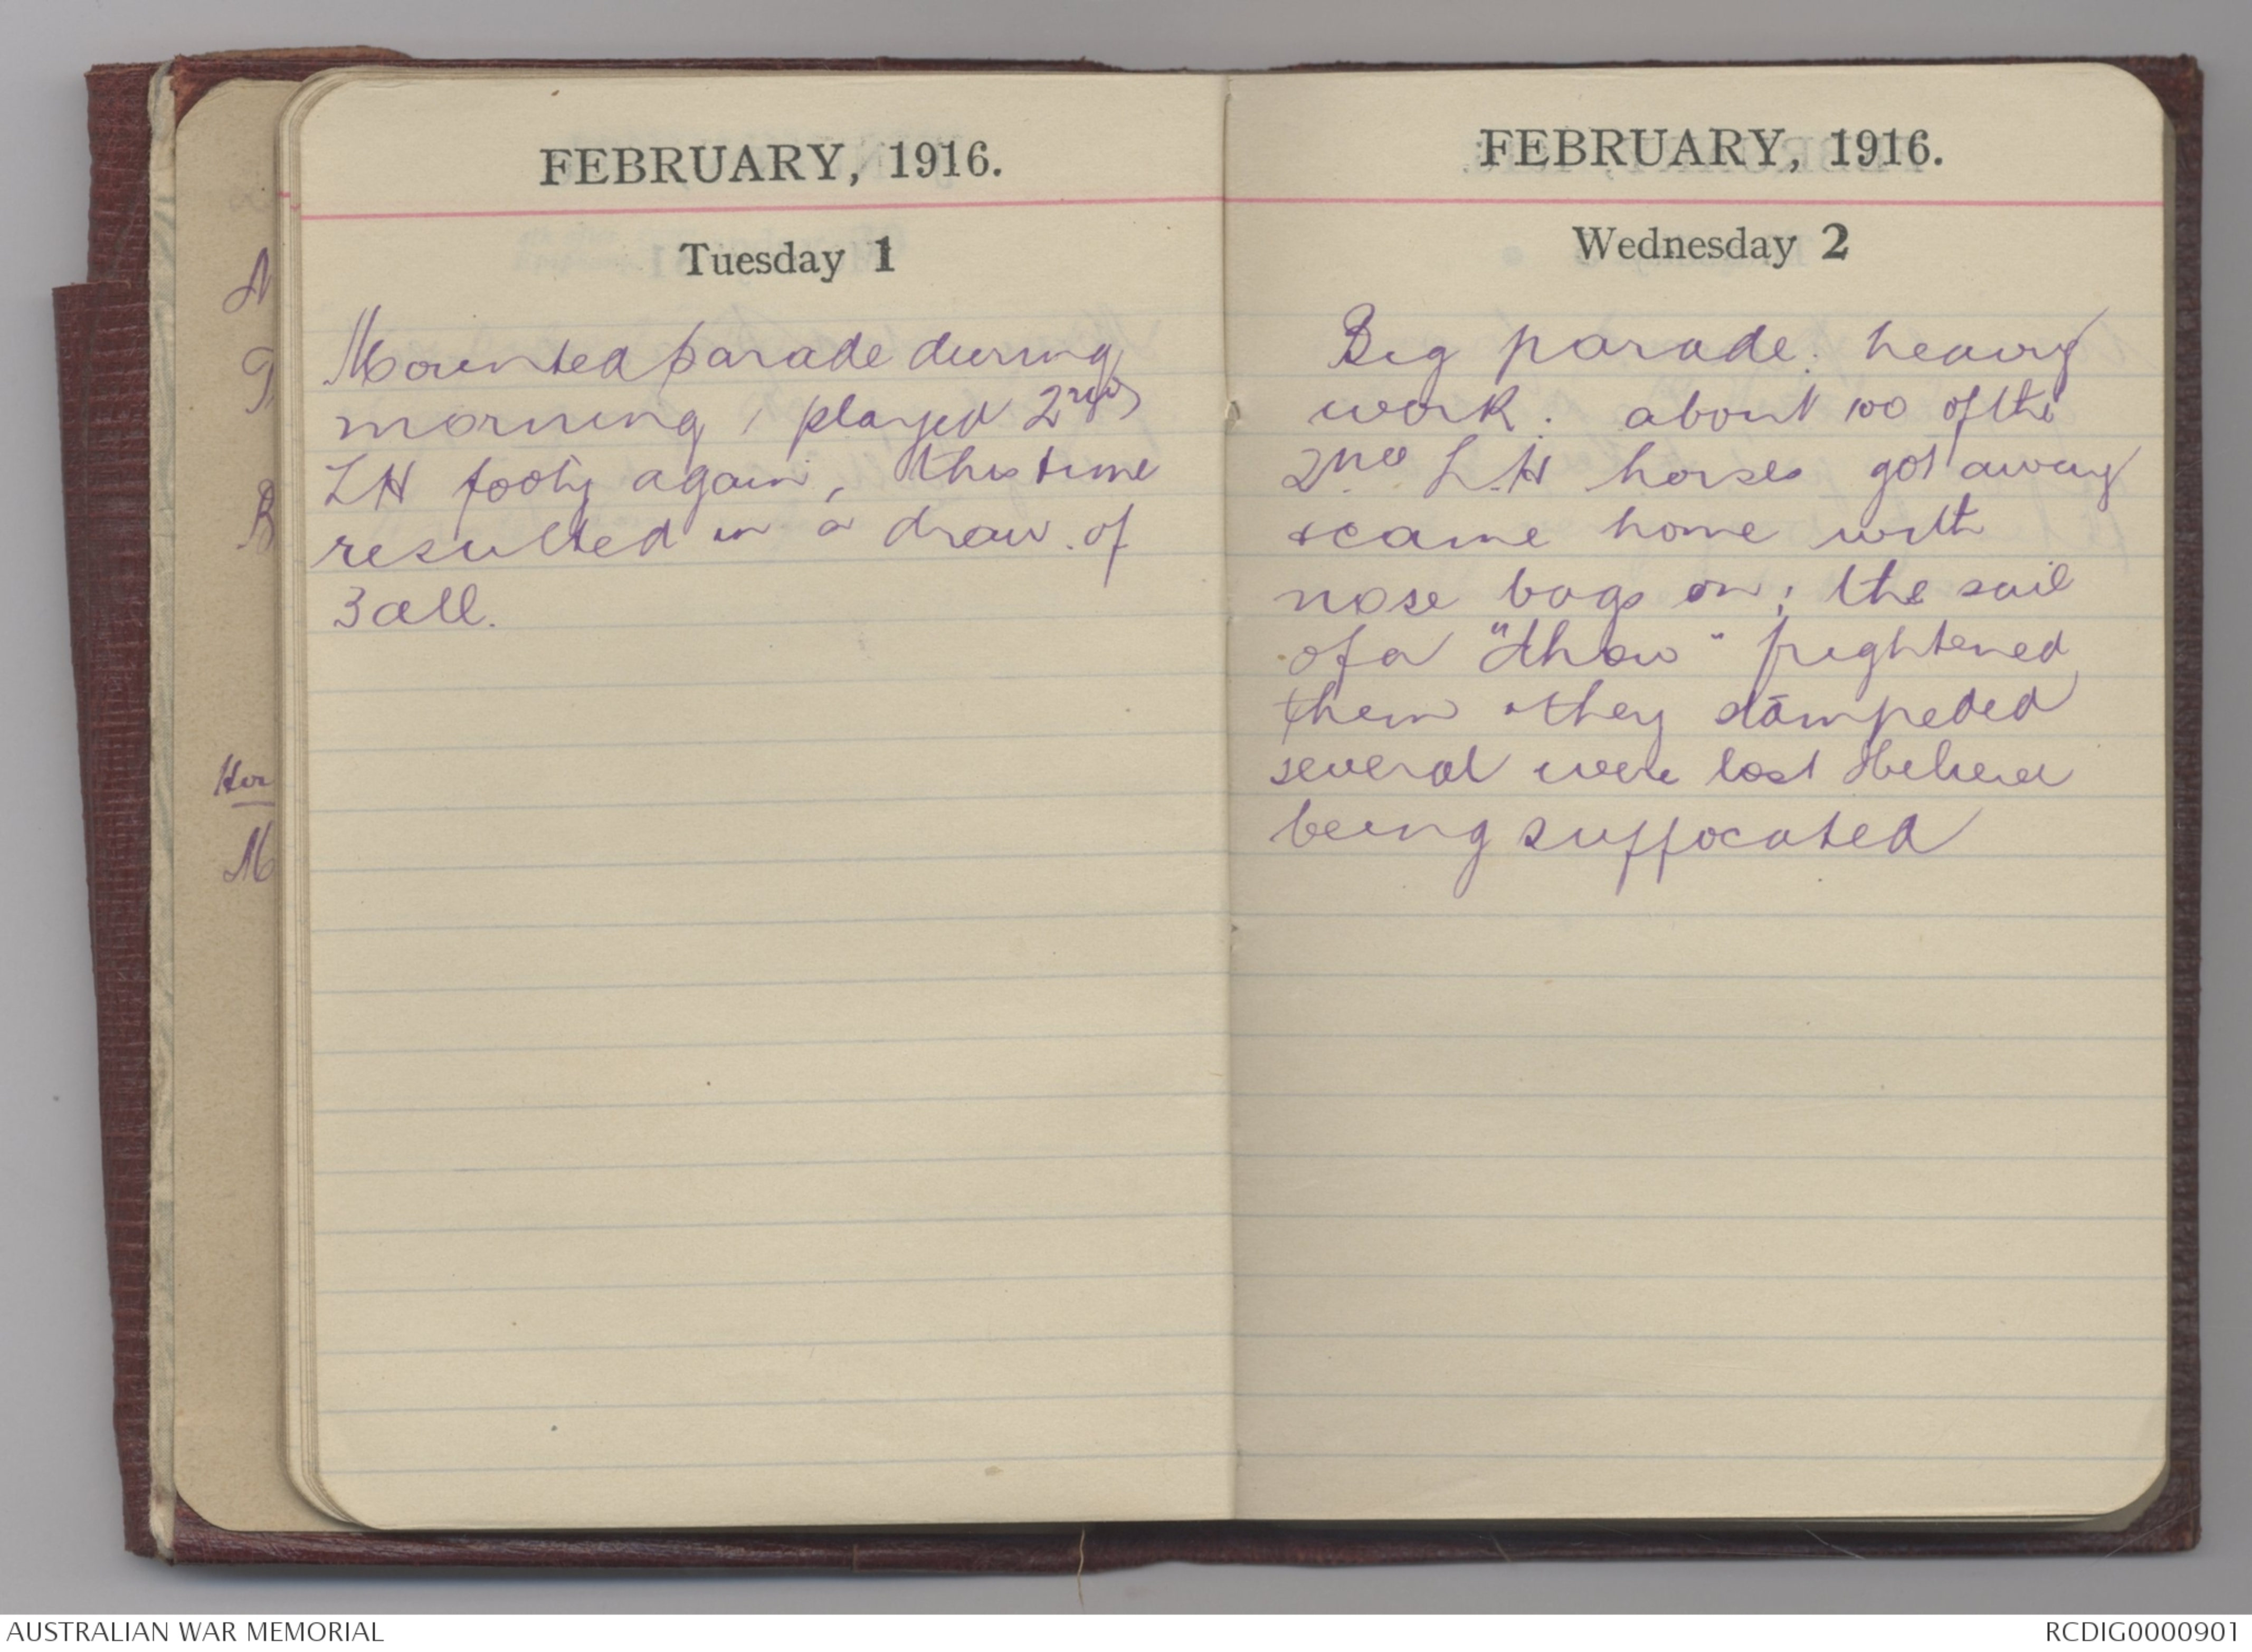 FEBRUARY, 1916.
Tuesday 1
Mounted parade during
morning, played 2nd
LH footy again, this time
resulted in a draw. of
3 all.
FEBRUARY, 1916.
Wednesday 2
Big parade. heavy
work. about 100 of the
2nd L.H horses got away
& came home with
nose bags on; the sail
of a "dhow" frightened
them & they stampeded
several were lost
being suffocated
A
B
Hor
M
AUSTRALIAN WAR MEMORIAL
RCDIG0000901